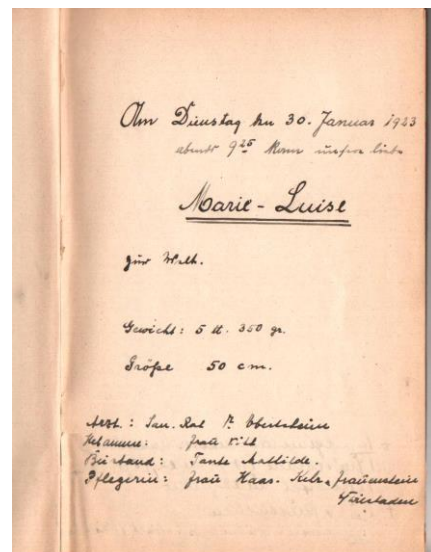 Am Dienstag den 30. Januar 1923
abends 9 25 kam unsere liebe
Marie-Luise
zur Welt.
Gewicht: 5 tt. 350 gr.
Größe 50 cm.
Arzt.: San. Rat Dr.
Hebamme: Frau
Beistand: Tante Mathilde.
Pflegerin: Frau Haas.
Wiesbaden